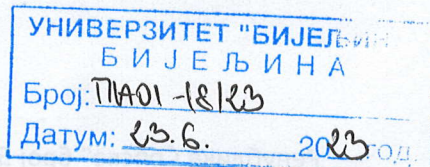 УНИВЕРЗИТЕТ "БИЈЕЉИНА
БИЈЕЉИНА
Број: ПА01-18/23
Датум: 23.6. 2023 год.